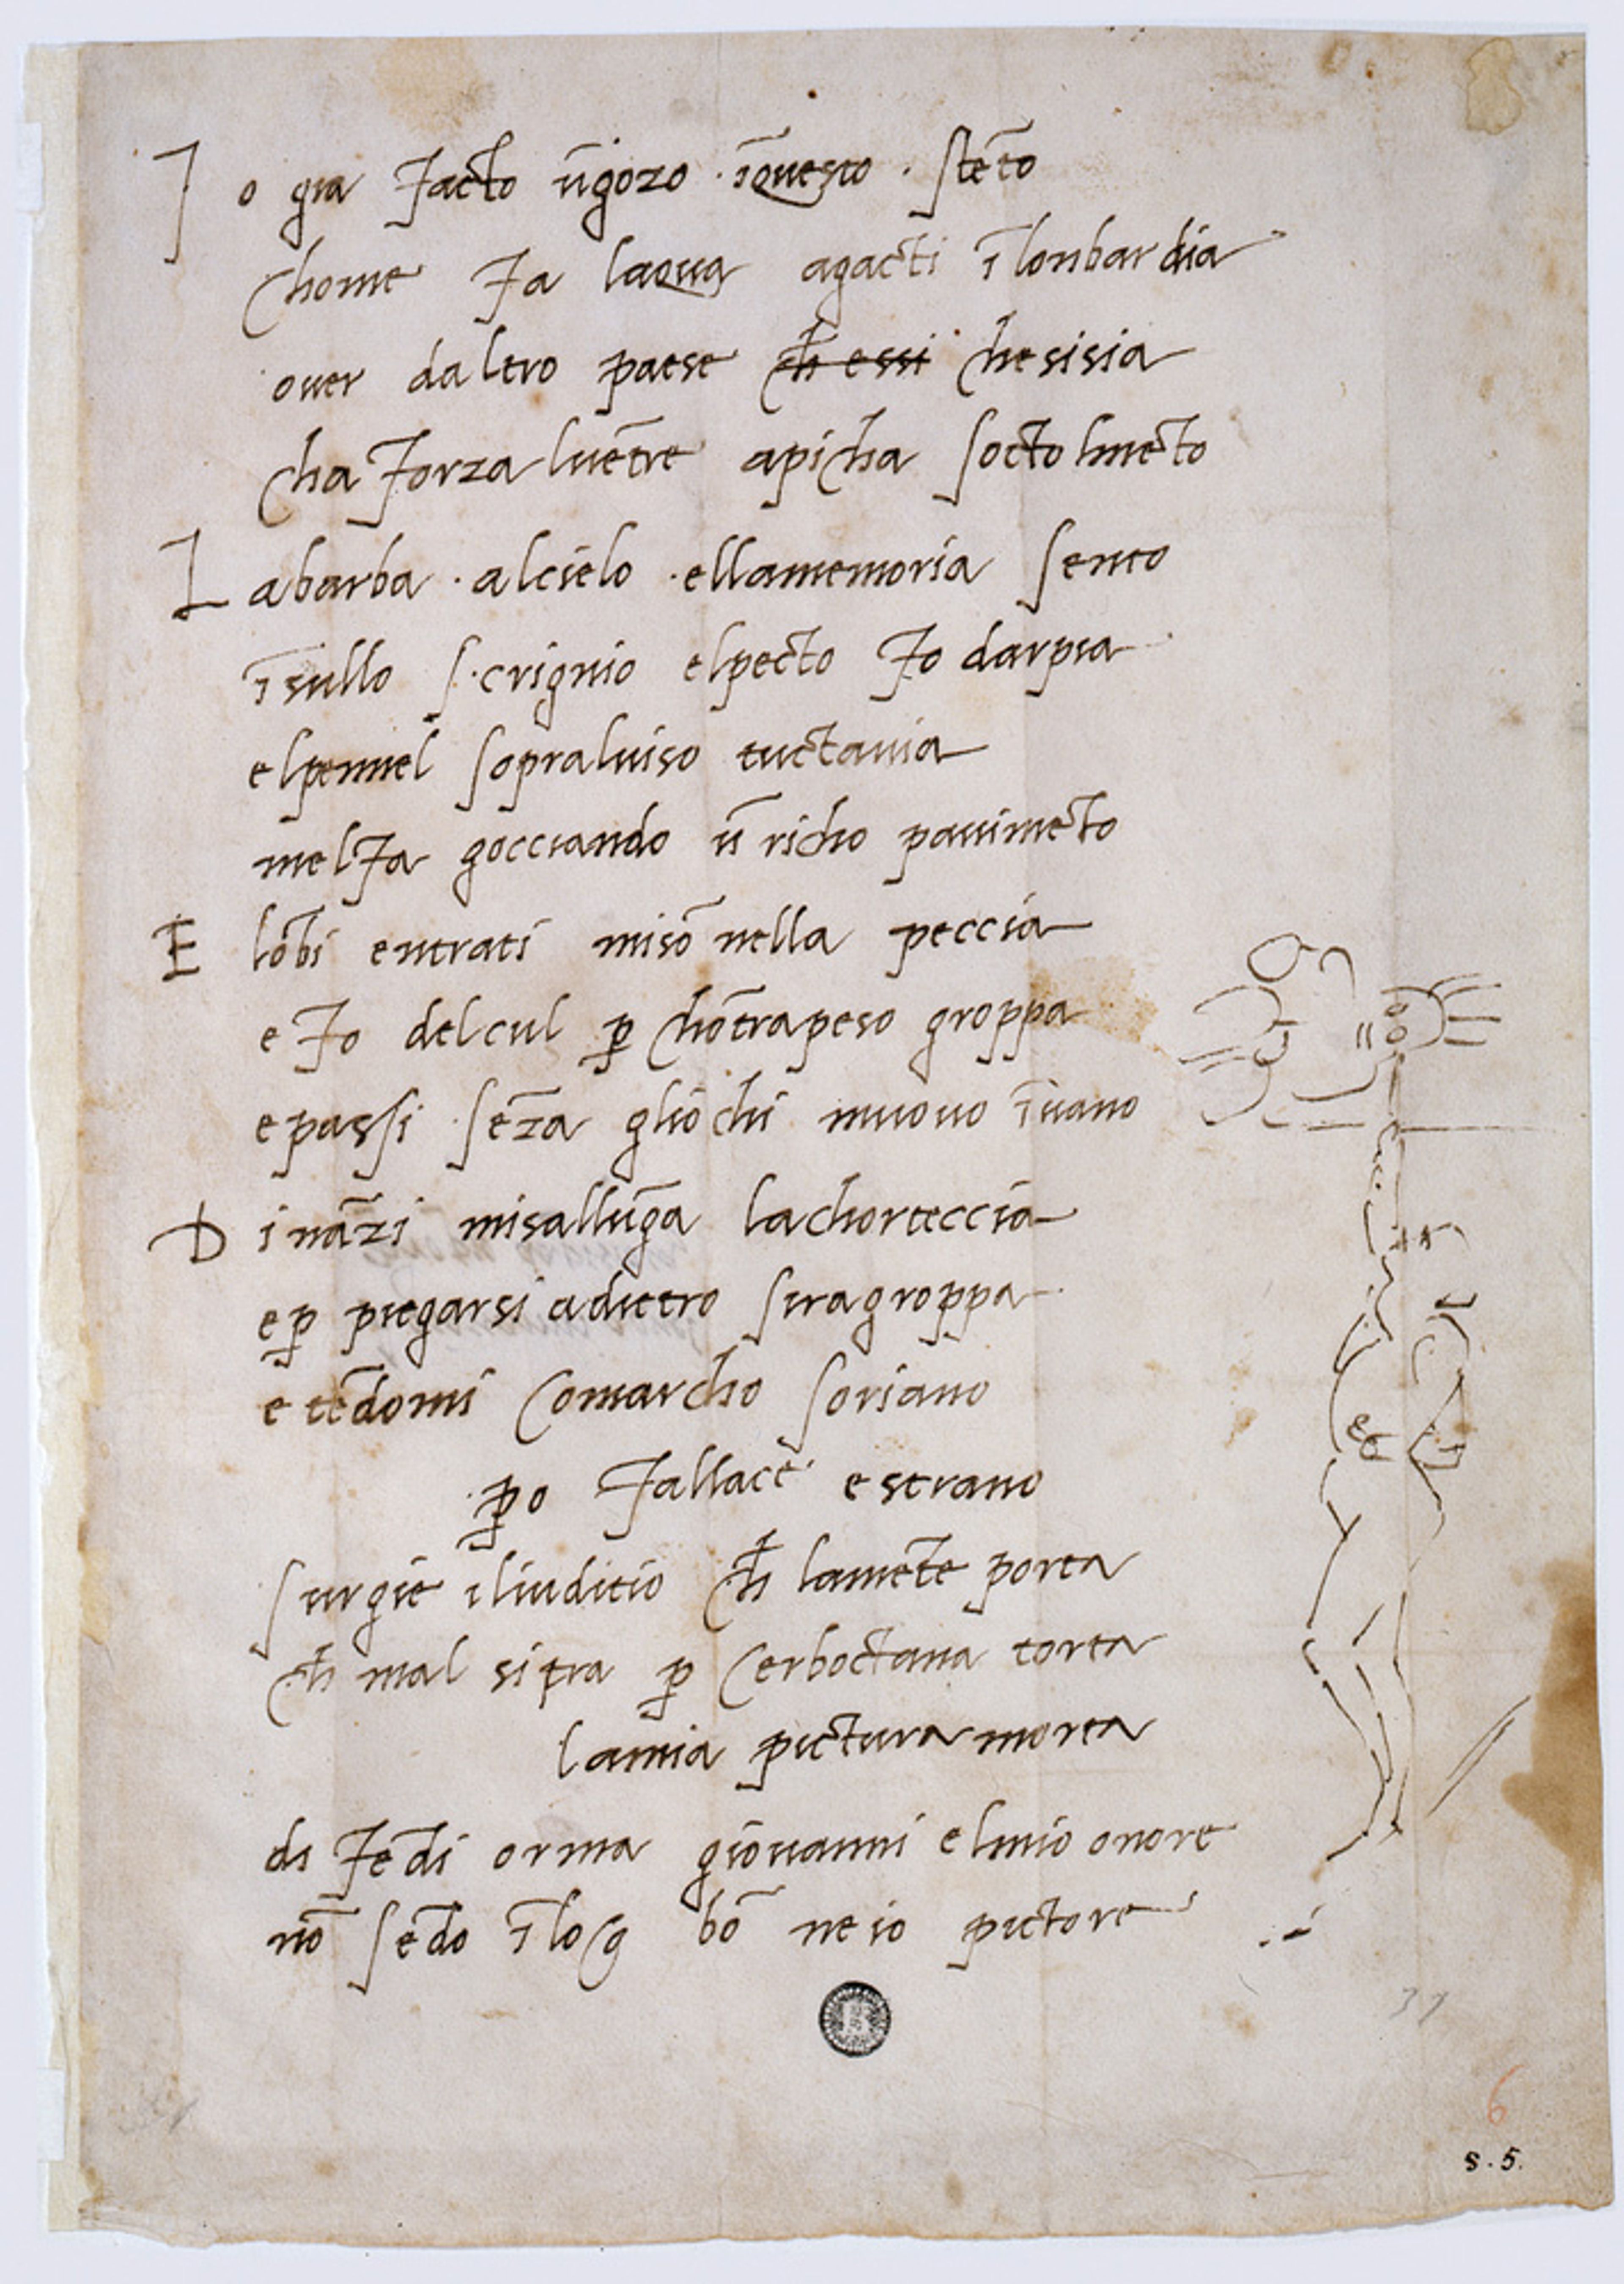 I o gia facto ūgozo · īquesto · stēto
chome fa laqua agacti ī lonbardia
over daltro paese ch̄ essi chesisia
cha forza lvētre apicha socto lmēto
L abarba · alcielo · ellamemoria sento
īsullo s·crignio elpecto fo darpia
elpennel sopralviso tuctavia
melfa gocciando ū richo pavimēto
E lōbi entrati misō nella peccia
e fo delcul ꝑ chōtrapeso groppa
epassi sēza gliochi muovo īvano
D ināzi misallūga lachorteccia
eꝑ piegarsi adietro siragroppa
e tēdomi Comarcho soriano
ꝑo fallace e strano
surgie iliuditio ch̄ lamēte porta
ch̄ mal si tra ꝑ cerboctana torta
lamia pictura morta
di fēdi orma giovanni elmio onore
nō sēdo ī log bō ne io pictore
37
6
s. 5.